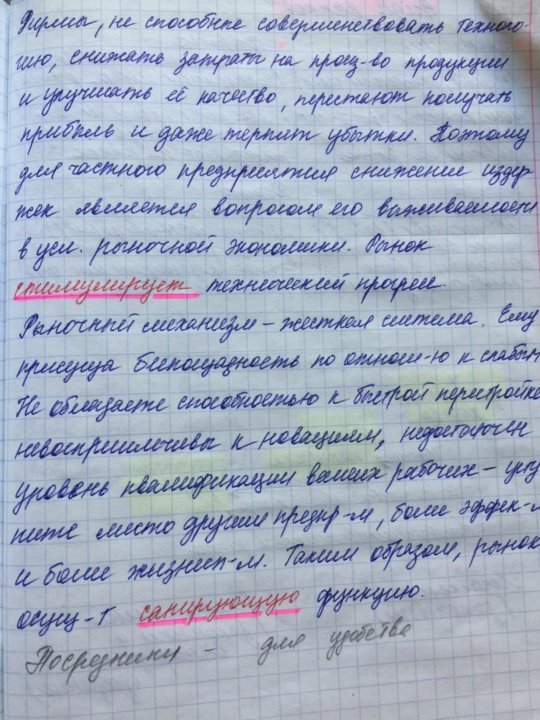 Фирмы, не способные совершенствовать техноло-
гию, снижать затраты на произ-во продукции
и улучшать её качество, перестают получать
прибыль и даже терпят убытки. Поэтому
для частного предприятия снижение издер
жек является вопросом его выживаемости
в усл. рыночной экономики. Рынок
стимулирует технический прогресс.
Рыночный механизм – жесткая система. Ему
присуща беспощадность по отнош-ю к слабым
Не обладаете способностью к быстрой перестройке
невосприимчивы к новациям, недостаточен
уровень квалификации ваших рабочих – усту
пите место другим предпр-м, более эффек-м
и более жизнесп-м. Таким образом, рынок
осущ-т санирующую функцию.
Посредники – для удобства